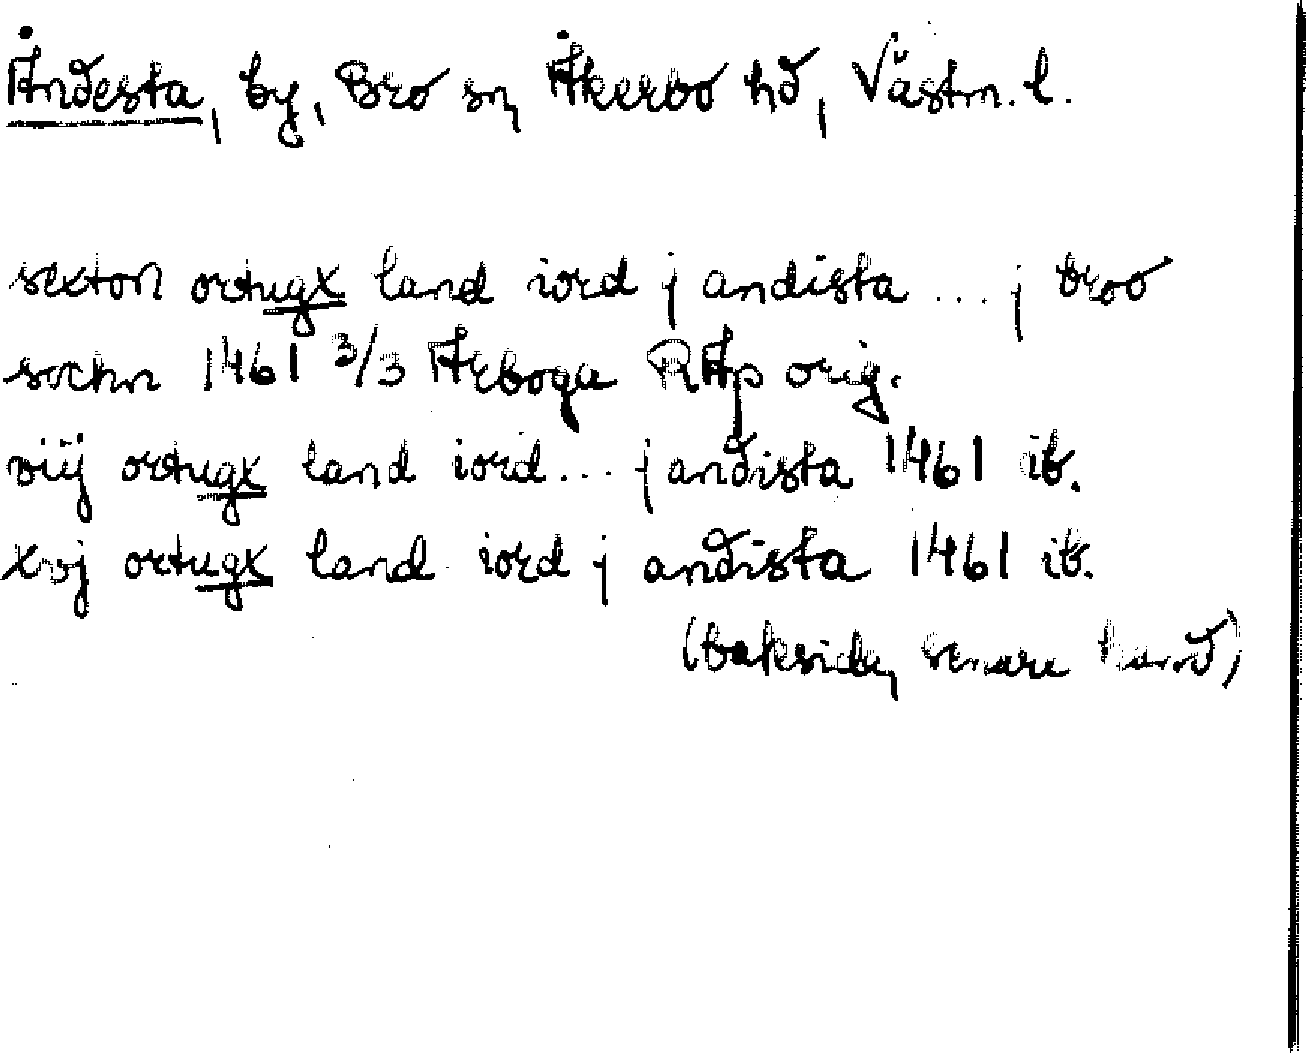 Åndesta, by, Bro sn, Åkerbo hd, Västm. l.
sexton ortugx land iord j andista ... j broo
sockn 1461 3/3 Arboga RAp orig.
viij ortugx land iord ... j andista 1461 ib.
xvj ortugx land iord j andista 1461 ib.
(baksida, senare hand)